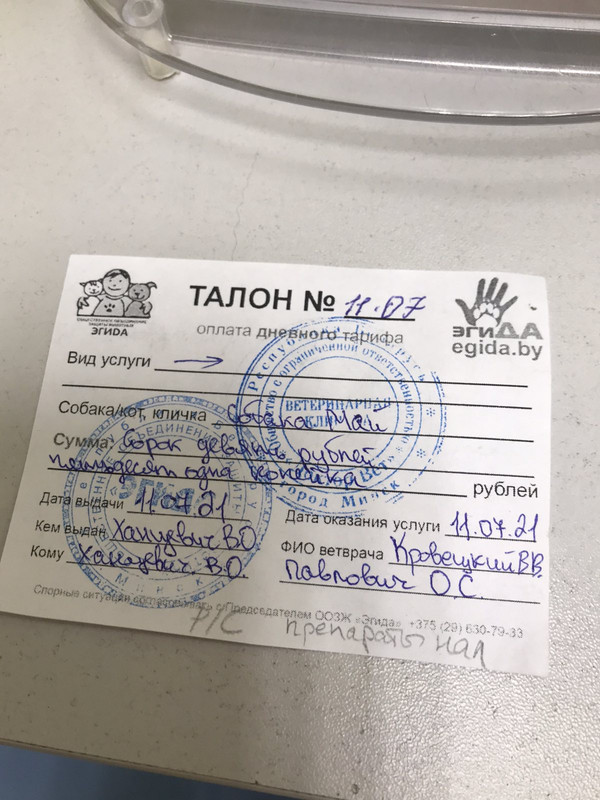 ТАЛОН № 11.07
оплата дневного тарифа
ОБЩЕСТВЕННОЕ ОБЪЕДИНЕНИЕ
ЗАЩИТЫ ЖИВОТНЫХ
ЭГИДА
ЭГИДА
egida.by
Вид услуги →
Собака/кот, кличка Собака Май
Сумма: Сорок девять рублей
пятьдесят одна копейка рублей
Дата выдачи 11.07.21
Дата оказания услуги 11.07.21
Кем выдан Ханцевич В.О
ФИО ветврача Кровецкий В.В.
Кому Ханцевич В.О.
Павлович О.С.
Спорные ситуации согласовывать с Председателем ООЗЖ «Эгида» +375 (29) 630-79-33
Р/С препараты нал
Общество с ограниченной ответственностью
ВЕТЕРИНАРНАЯ
КЛИНИКА
город Минск